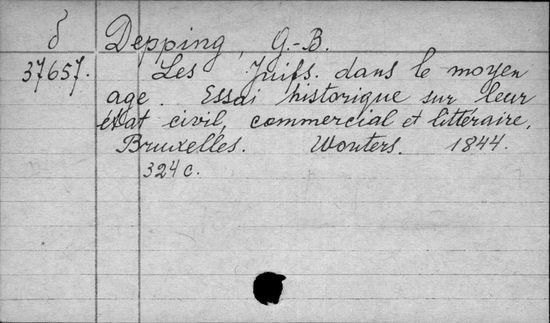 δ Depping, G.-B.
37657. Les Juifs. dans le moyen
age. Essai historique sur leur
état civil, commercial et littéraire.
Bruxelles. Wouters. 1844.
324 c.